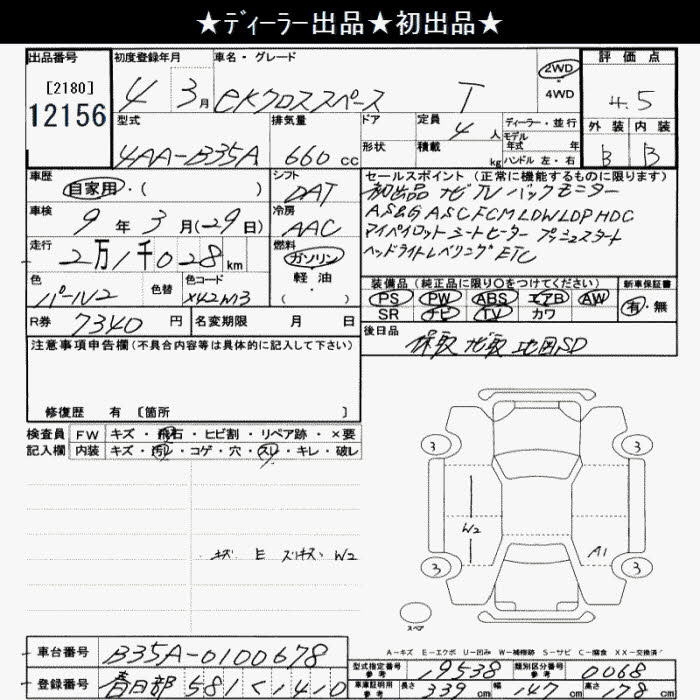 ★ディーラー出品★初出品★
出品番号 初度登録年月 車名・グレード 評価点
[2180] 12156 4 3月 eKクロススペース T 2WD・4WD 4.5
型式 排気量 ドア 定員 ディーラー・並行 外装 内装
4AA-B35A 660cc 形状 積載 4人 kg モデル年式 年 ハンドル 左・右 B B
車歴 シフト セールスポイント(正常に機能するものに限ります)
自家用・( ) DAT 初出品 ナビ TV バックモニター
車検 9年3月(29日) 冷房 AAC AS&G ASC FCM LDW LDP HDC
走行 2万1千028km 燃料 ガソリン・軽油・( ) マイパイロット シートヒーター プッシュスタート
ヘッドライトレベリング ETC
色 パール2 色替 色コード X42M13
装備品(純正品に限り○をつけてください) 新車保証書
PS PW ABS エアB AW 有・無
SR ナビ TV カワ
R券 7340円 名変期限 月 日 後日品
保取 ナビ取 地図SD
注意事項申告欄(不具合内容等は具体的に記入して下さい)
修復歴 有 〔箇所 〕
検査員 FW キズ・飛石・ヒビ割・リペア跡・×要
記入欄 内装 キズ・汚レ・コゲ・穴・スレ・キレ・破レ
3 3
W2
キズ E スリキズ W2
A1
3 3
スペア
A-キズ E-エクボ U-凹み W-補修跡 S-サビ C-腐食 XX-交換済
車台番号 B35A-0100678
型式指定番号 参考 19538 類別区分番号 参考 0068
登録番号 春日部 581 く 1410
車庫証明用 参考 長さ 339cm 幅 147cm 高さ 178cm